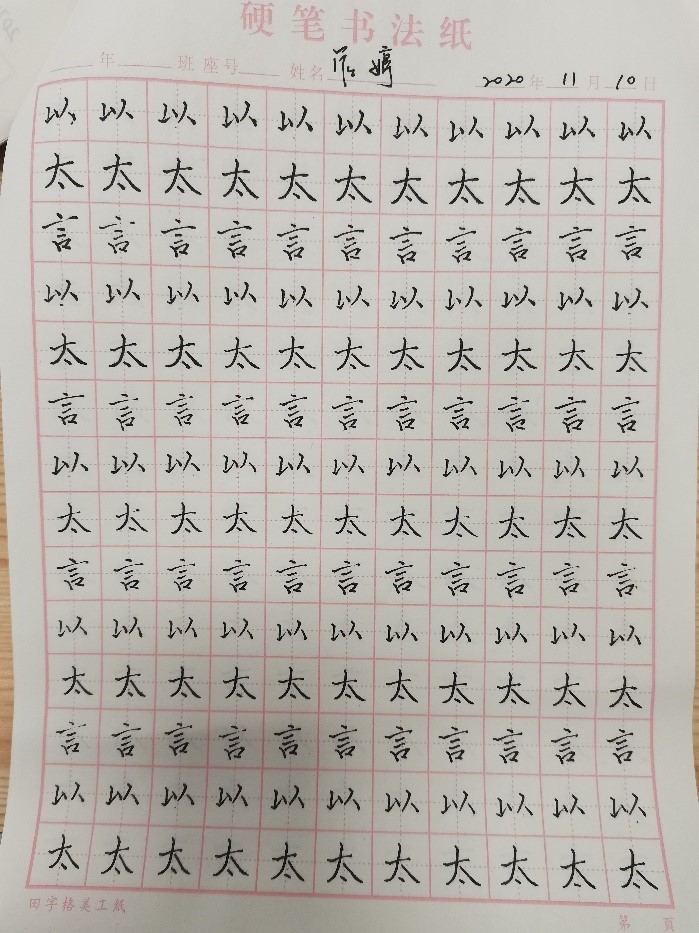 硬笔书法纸
年 班 座号 姓名 婷 2020年 11月 10日
以以以以以以以以以以以
太太太太太太太太太太太
言言言言言言言言言言言
以以以以以以以以以以以
太太太太太太太太太太太
言言言言言言言言言言言
以以以以以以以以以以以
太太太太太太太太太太太
言言言言言言言言言言言
以以以以以以以以以以以
太太太太太太太太太太太
言言言言言言言言言言言
以以以以以以以以以以以
太太太太太太太太太太太
田字格美工纸 第 页